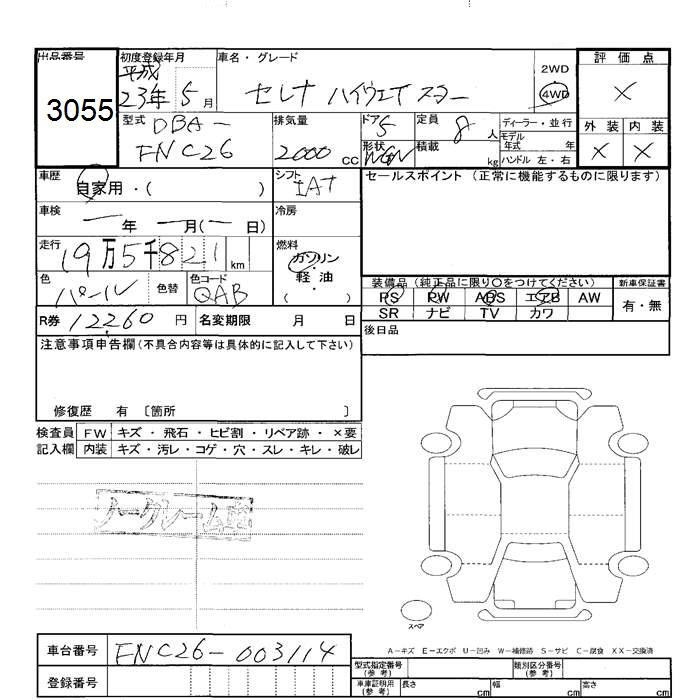 出品番号 初度登録年月 車名・グレード 評価点
3055 平成 23年 5月 セレナ ハイウェイスター 2WD 4WD ×
型式 DBA- 排気量 ドア 5 定員 8人 ディーラー・並行 外装 内装
FNC26 2000cc 形状 WGN 積載 kg モデル年式 年 ハンドル 左・右 × ×
車歴 自家用・( ) シフト IAT セールスポイント (正常に機能するものに限ります)
車検 一年 一月(一日) 冷房
走行 19万5千821km 燃料 ガソリン・軽油 ( )
色 パール 色替 色コード QAB
装備品(純正品に限り〇をつけてください) 新車保証書
PS PW ABS エアB AW 有・無
SR ナビ TV カワ
R券 12260円 名変期限 月 日 後日品
注意事項申告欄(不具合内容等は具体的に記入して下さい)
修復歴 有 〔箇所 〕
検査員 FW キズ・飛石・ヒビ割・リペア跡・×要
記入欄 内装 キズ・汚レ・コゲ・穴・スレ・キレ・破レ
ノークレーム
スペア
A-キズ E-エクボ U-凹み W-補修跡 S-サビ C-腐食 XX-交換済
車台番号 FNC26-003114
型式指定番号(参考) 類別区分番号(参考)
登録番号
車庫証明用(参考) 長さ cm 幅 cm 高さ cm